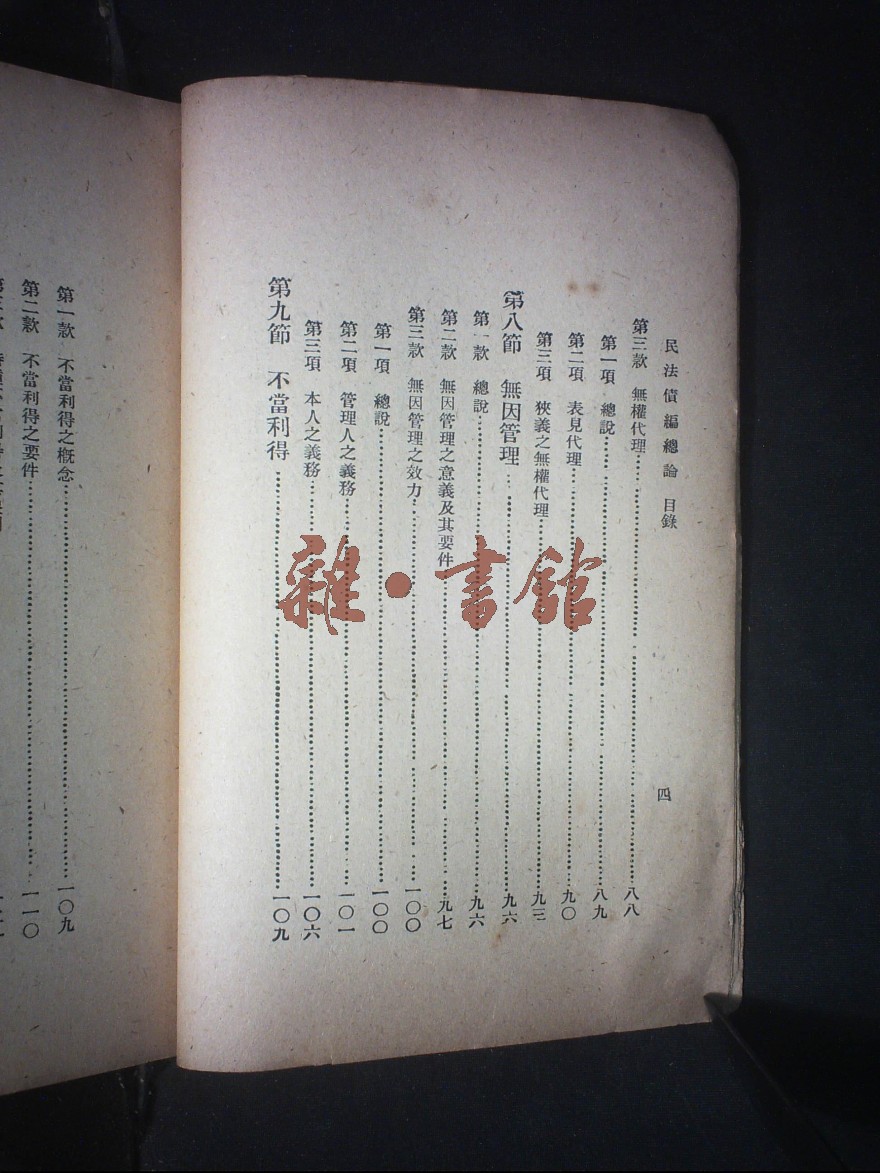 民法債編總論　目錄
四
第三款　無權代理……八八
第一項　總說……八九
第二項　表見代理……九〇
第三項　狹義之無權代理……九三
第八節　無因管理……九六
第一款　總說……九六
第二款　無因管理之意義及其要件……九七
第三款　無因管理之效力……一〇〇
第一項　總說……一〇〇
第二項　管理人之義務……一〇一
第三項　本人之義務……一〇六
第九節　不當利得……一〇九
第一款　不當利得之概念……一〇九
第二款　不當利得之要件……一一〇
雜·書館